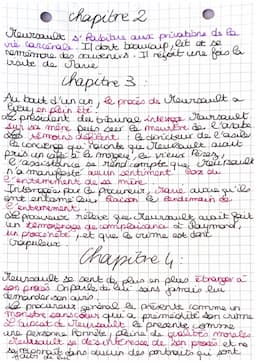 Chapitre 2
Meursault s'habitue aux privations de la
vie carcérale. Il dort beaucoup, lit et se
remémore des souvenirs. Il reçoit une fois la
visite de Marie
Chapitre 3 :
Au bout d'un an, le procès de Meursault a
lieu, en plein été.
Le président du tribunal interroge Meursault
sur sa mère puis sur le meurtre de l'arabe
Les témoins défilent : le directeur de l'asile
le concierge qui raconte que Meursault avait
pris un café à la morgue, le vieux Pérez,
L'assistance se rend compte que Meursault
n'a manifesté aucun sentiment lors de
l'enterrement de sa mère.
Interrogée par le procureur, Marie avoue qu'ils
ont entamé leur liaison le lendemain de
l'enterrement.
Le procureur relève que Meursault avait fait
un témoignage de complaisance à Raymond,
un proxénète, et que le crime est donc
crapuleux.
Chapitre 4 :
Meursault se sent de plus en plus étranger à
son procès. On parle de lui sans jamais lui
demander son avis
Le procureur général le présente comme un
monstre sans cœur qui a prémédité son crime
L'avocat de Meursault le présente comme
une personne honnête, pleine de qualités morales
Meursault se désintéresse de son procès et ne
se reconnaît dans aucun des portraits qui sont